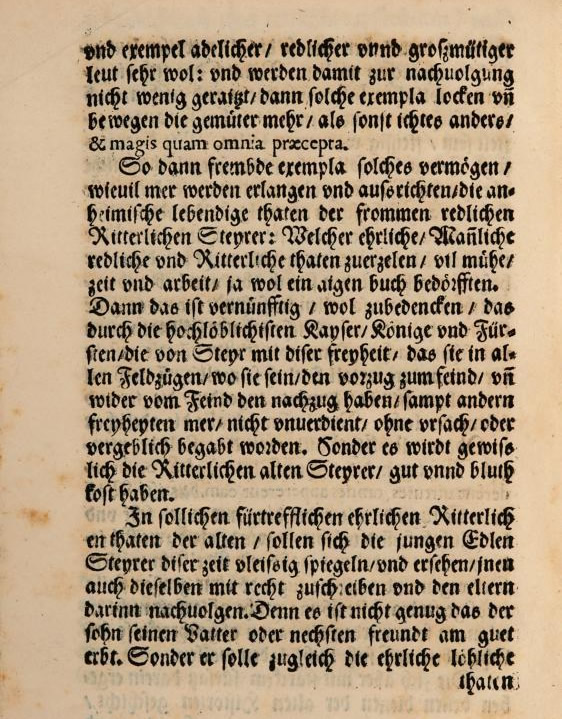 vnd exempel adelicher/ redlicher vnnd groszmütiger
leut sehr wol: vnd werden damit zur nachuolgung
nicht wenig geraitzt/ dann solche exempla locken vñ
bewegen die gemüter mehr/ als sonst ichtes anders/
& magis quam omnia præcepta.
So dann frembde exempla solches vermögen/
wieuil mer werden erlangen vnd aussrichten/die an-
heimische lebendige thaten der frommen redlichen
Ritterlichen Steyrer: Welcher ehrliche/ Mañliche
redliche vnd Ritterliche thaten zuerzelen/ vil mühe/
zeit vnd arbeit/ ja wol ein aigen buch bedörfften.
Dann das ist vernünfftig / wol zubedencken / das
durch die hochlöblichisten Kayser/ Könige vnd Für-
sten/die von Steyr mit diser freyheit/ das sie in al-
len Feldzügen/wo sie sein/den vorzug zum feind/ vñ
wider vom Feind den nachzug haben/ sampt andern
freyheyten mer/ nicht vnuerdient/ ohne vrsach/ oder
vergeblich begabt worden. Sonder es wirdt gewiss
lich die Ritterlichen alten Steyrer/ gut vnnd bluth
kost haben.
In sollichen fürtrefflichen ehrlichen Ritterlich
en thaten der alten / sollen sich die jungen Edlen
Steyrer diser zeit vleissig spiegeln/vnd ersehen/jnen
auch dieselben mit recht zuschreiben vnd den eltern
darinn nachuolgen. Denn es ist nicht genug das der
sohn seinen Vatter oder nechsten freundt am guet
erbt. Sonder er solle zugleich die ehrliche löbliche
thaten